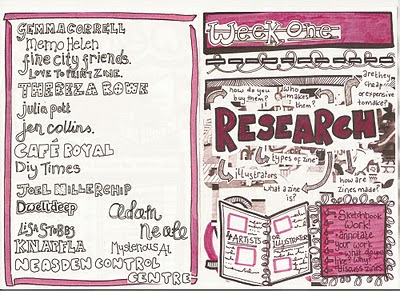 GEMMA CORRELL
Memo Helen
fine city friends.
LOVE TO PRINT ZINE.
THEREZA ROWE
julia pott
jen collins.
CAFÉ ROYAL
Diy Times
JOEL MILLERCHIP
Dwelldeep
adam
neate
LISA STUBBS
KNARFLA
Mysterious AL
NEASDEN CONTROL
CENTRE
Week One
how do you
buy them?
who
makes
them?
are they
cheap
or expensive
to make?
RESEARCH
types of zine
illustrators
what a zine
is?
how are
zines made?
4 ARTISTS
OR ILLUSTRATORS
Sketchbook
Work!
annotate
your work
what do you
why
discuss zines